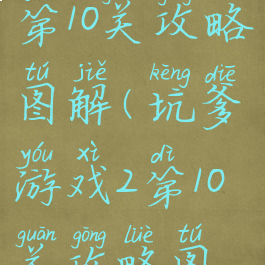 第10关攻略
tú jiě kēng diē
图解(坑爹
yóu xì dì
游戏2第10
guān gōng lüè tú
关攻略图